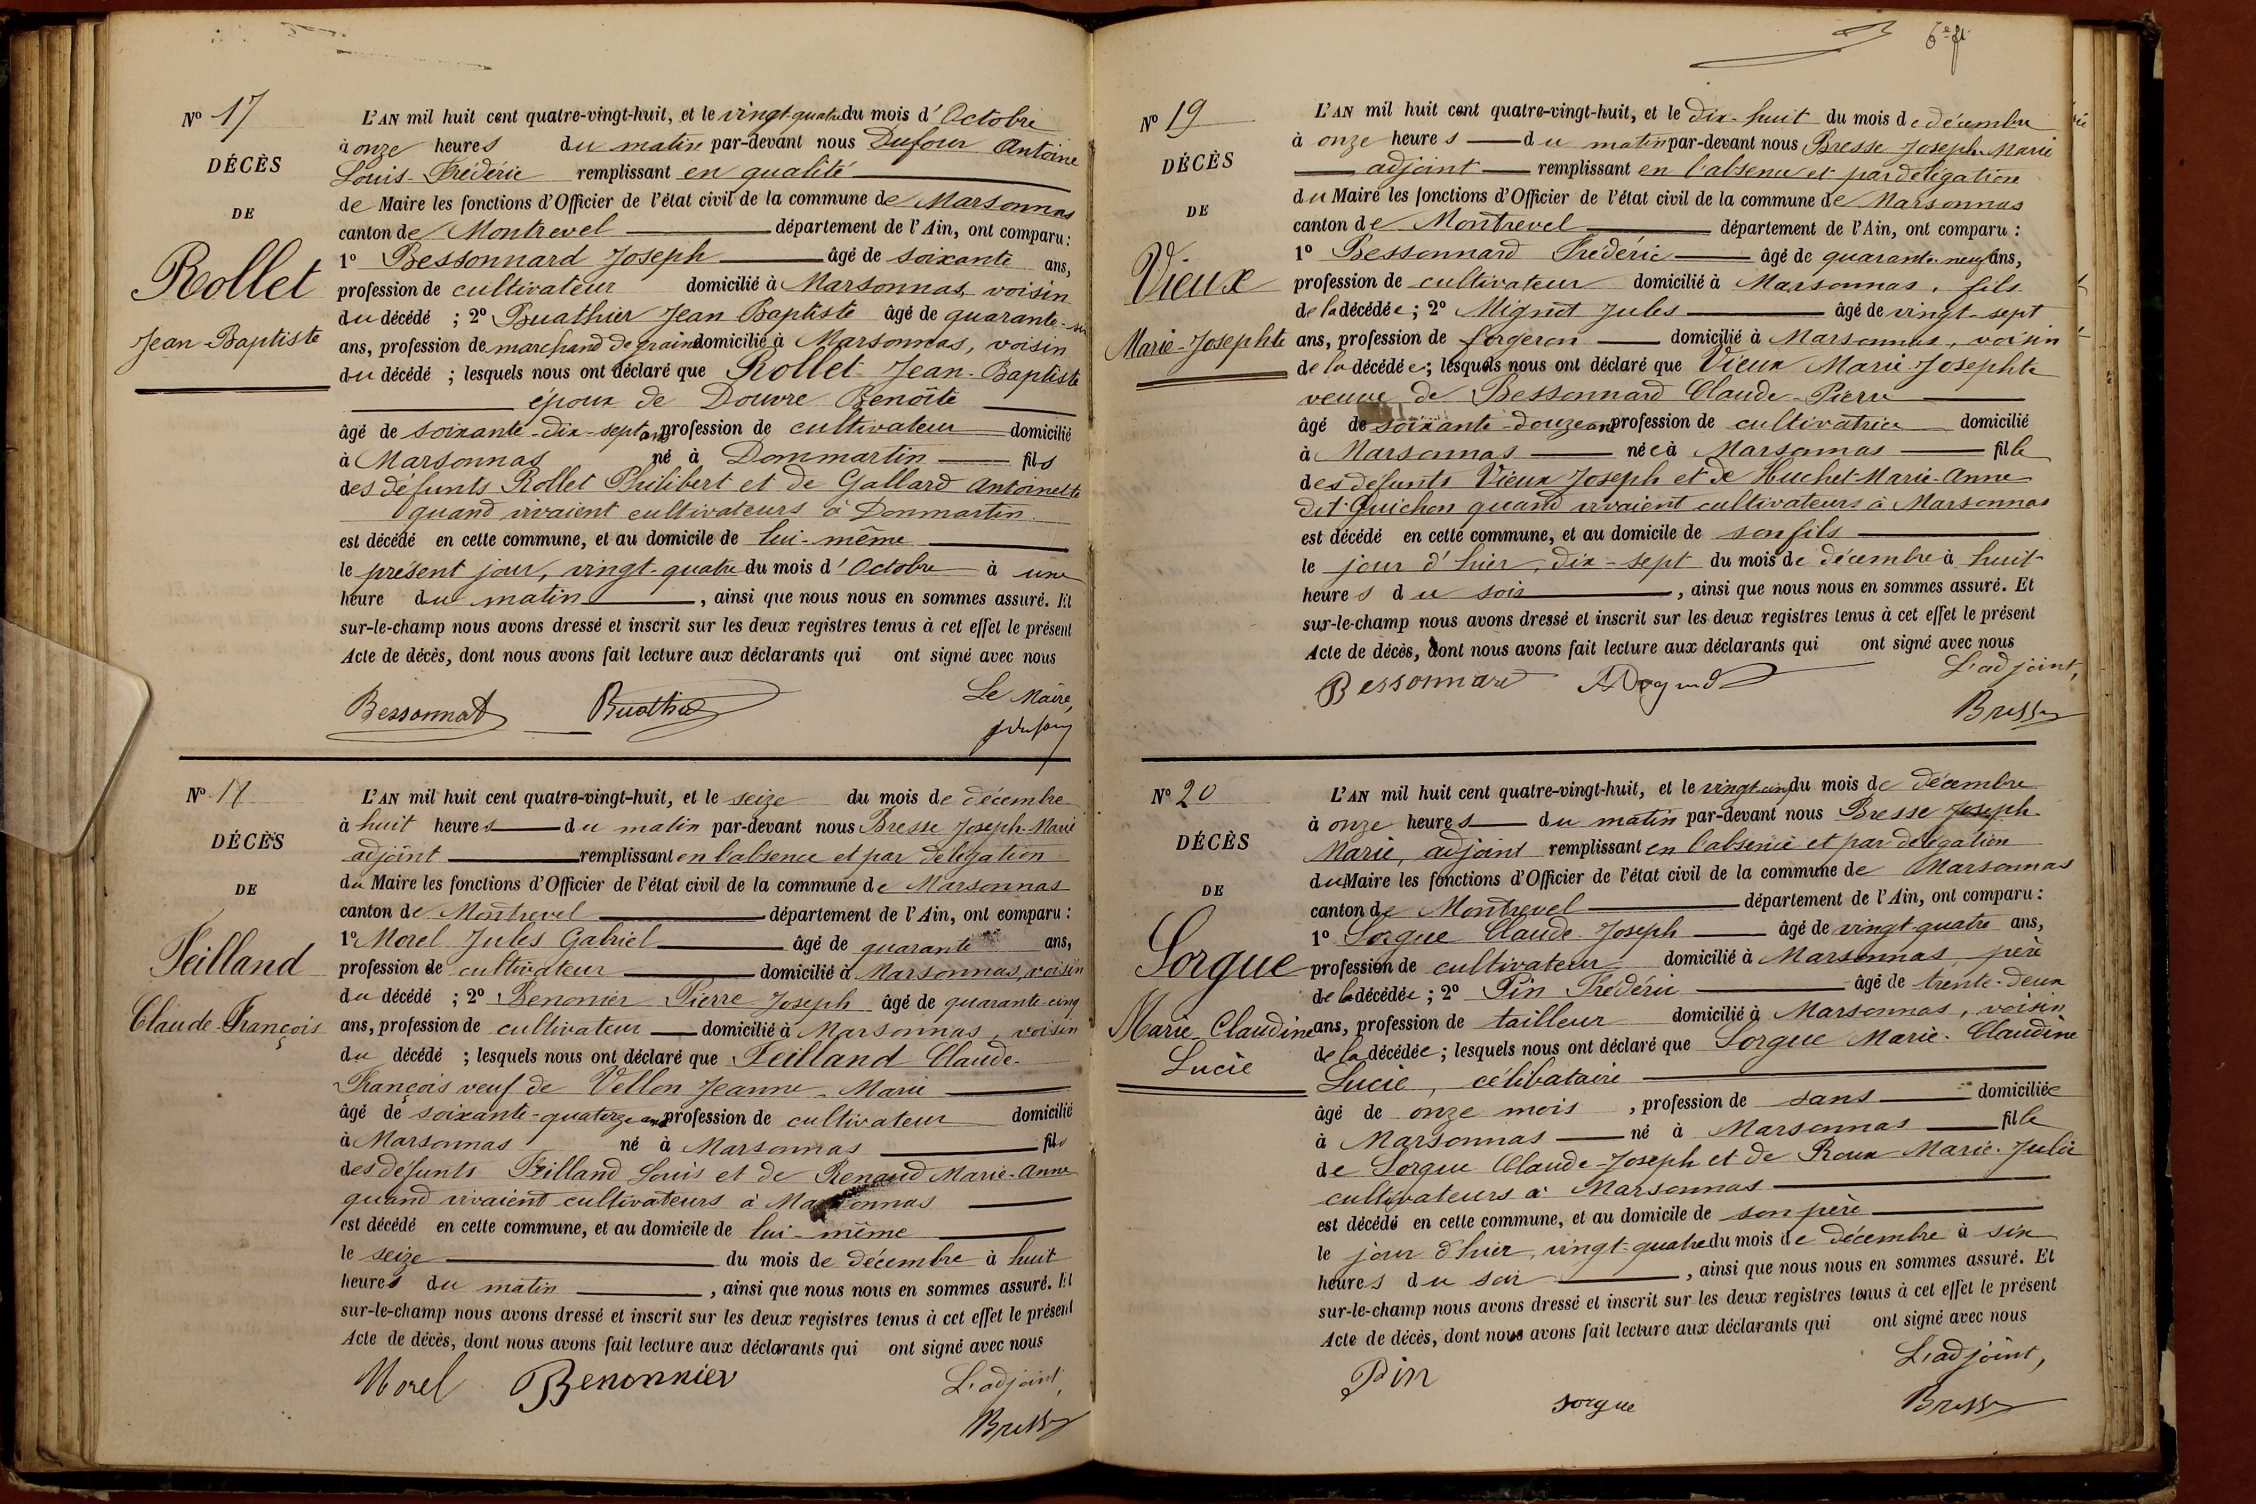 Nº 17
DÉCÈS
DE
Rollet
Jean-Baptiste
L'AN mil huit cent quatre-vingt-huit, et le vingt-quatre du mois d'Octobre
à onze heures du matin par-devant nous Dufour Antoine
Louis-Frédéric remplissant en qualité
de Maire les fonctions d'Officier de l'état civil de la commune de Marsonnas
canton de Montrevel département de l'Ain, ont comparu :
1º Bessonnard Joseph âgé de soixante ans,
profession de cultivateur domicilié à Marsonnas, voisin
du décédé ; 2º Buathier Jean Baptiste âgé de quarante-six
ans, profession de marchand de grains domicilié à Marsonnas, voisin
du décédé ; lesquels nous ont déclaré que Rollet Jean-Baptiste
époux de Douvre Benoîte
âgé de soixante-dix-sept ans profession de cultivateur domicilié
à Marsonnas né à Dommartin fils
des défunts Rollet Philibert et de Gallard Antoinette
quand vivaient cultivateurs à Donmartin
est décédé en cette commune, et au domicile de lui-même
le présent jour, vingt-quatre du mois d'Octobre à une
heure du matin, ainsi que nous nous en sommes assuré. Et
sur-le-champ nous avons dressé et inscrit sur les deux registres tenus à cet effet le présent
Acte de décès, dont nous avons fait lecture aux déclarants qui ont signé avec nous
Le Maire,
Bessonnat Buathier
Nº 18
DÉCÈS
DE
Feilland
Claude-François
L'AN mil huit cent quatre-vingt-huit, et le seize du mois de décembre
à huit heures du matin par-devant nous Bresse Joseph-Marie
adjoint remplissant en l'absence et par délégation
du Maire les fonctions d'Officier de l'état civil de la commune de Marsonnas
canton de Montrevel département de l'Ain, ont comparu :
1º Morel Jules Gabriel âgé de quarante ans,
profession de cultivateur domicilié à Marsonnas, voisin
du décédé ; 2º Benonier Pierre Joseph âgé de quarante-cinq
ans, profession de cultivateur domicilié à Marsonnas, voisin
du décédé ; lesquels nous ont déclaré que Feilland Claude-
François veuf de Vellon Jeanne-Marie
âgé de soixante-quatorze ans profession de cultivateur domicilié
à Marsonnas né à Marsonnas fils
des défunts Feilland Louis et de Renaud Marie-Anne
quand vivaient cultivateurs à Marsonnas
est décédé en cette commune, et au domicile de lui-même
le seize du mois de décembre à huit
heures du matin, ainsi que nous nous en sommes assuré. Et
sur-le-champ nous avons dressé et inscrit sur les deux registres tenus à cet effet le présent
Acte de décès, dont nous avons fait lecture aux déclarants qui ont signé avec nous
Morel Benonnier L'adjoint,
Bresse
Nº 19
DÉCÈS
DE
Vieux
Marie-Josephte
L'AN mil huit cent quatre-vingt-huit, et le dix-huit du mois de décembre
à onze heures du matin par-devant nous Bresse Joseph-Marie
adjoint remplissant en l'absence et par délégation
du Maire les fonctions d'Officier de l'état civil de la commune de Marsonnas
canton de Montrevel département de l'Ain, ont comparu :
1º Bessonnard Frédéric âgé de quarante-neuf ans,
profession de cultivateur domicilié à Marsonnas, fils
de la décédée ; 2º Mignot Jules âgé de vingt-sept
ans, profession de forgeron domicilié à Marsonnas, voisin
de la décédée ; lesquels nous ont déclaré que Vieux Marie-Josephte
veuve de Bessonnard Claude-Pierre
âgé de soixante-douze ans profession de cultivatrice domicilié
à Marsonnas née à Marsonnas fille
des défunts Vieux Joseph et de Huchet Marie-Anne
dit Guichon quand vivaient cultivateurs à Marsonnas
est décédé en cette commune, et au domicile de son fils
le jour d'hier, dix-sept du mois de décembre à huit
heures du soir, ainsi que nous nous en sommes assuré. Et
sur-le-champ nous avons dressé et inscrit sur les deux registres tenus à cet effet le présent
Acte de décès, dont nous avons fait lecture aux déclarants qui ont signé avec nous
L'adjoint,
Bessonnard
Bresse
Nº 20
DÉCÈS
DE
Sorgue
Marie-Claudine
Lucie
L'AN mil huit cent quatre-vingt-huit, et le vingt-cinq du mois de décembre
à onze heures du matin par-devant nous Bresse Joseph
Marie, adjoint remplissant en l'absence et par délégation
du Maire les fonctions d'Officier de l'état civil de la commune de Marsonnas
canton de Montrevel département de l'Ain, ont comparu :
1º Sorgue Claude-Joseph âgé de vingt-quatre ans,
profession de cultivateur domicilié à Marsonnas, père
de la décédée ; 2º Pin Frédéric âgé de trente-deux
ans, profession de tailleur domicilié à Marsonnas, voisin
de la décédée ; lesquels nous ont déclaré que Sorgue Marie-Claudine
Lucie, célibataire
âgé de onze mois, profession de sans domiciliée
à Marsonnas né à Marsonnas fille
de Sorgue Claude-Joseph et de Roux Marie-Julie
cultivateurs à Marsonnas
est décédé en cette commune, et au domicile de son père
le jour d'hier, vingt-quatre du mois de décembre à six
heures du soir, ainsi que nous nous en sommes assuré. Et
sur-le-champ nous avons dressé et inscrit sur les deux registres tenus à cet effet le présent
Acte de décès, dont nous avons fait lecture aux déclarants qui ont signé avec nous
L'adjoint,
Pin
sorgue Bresse